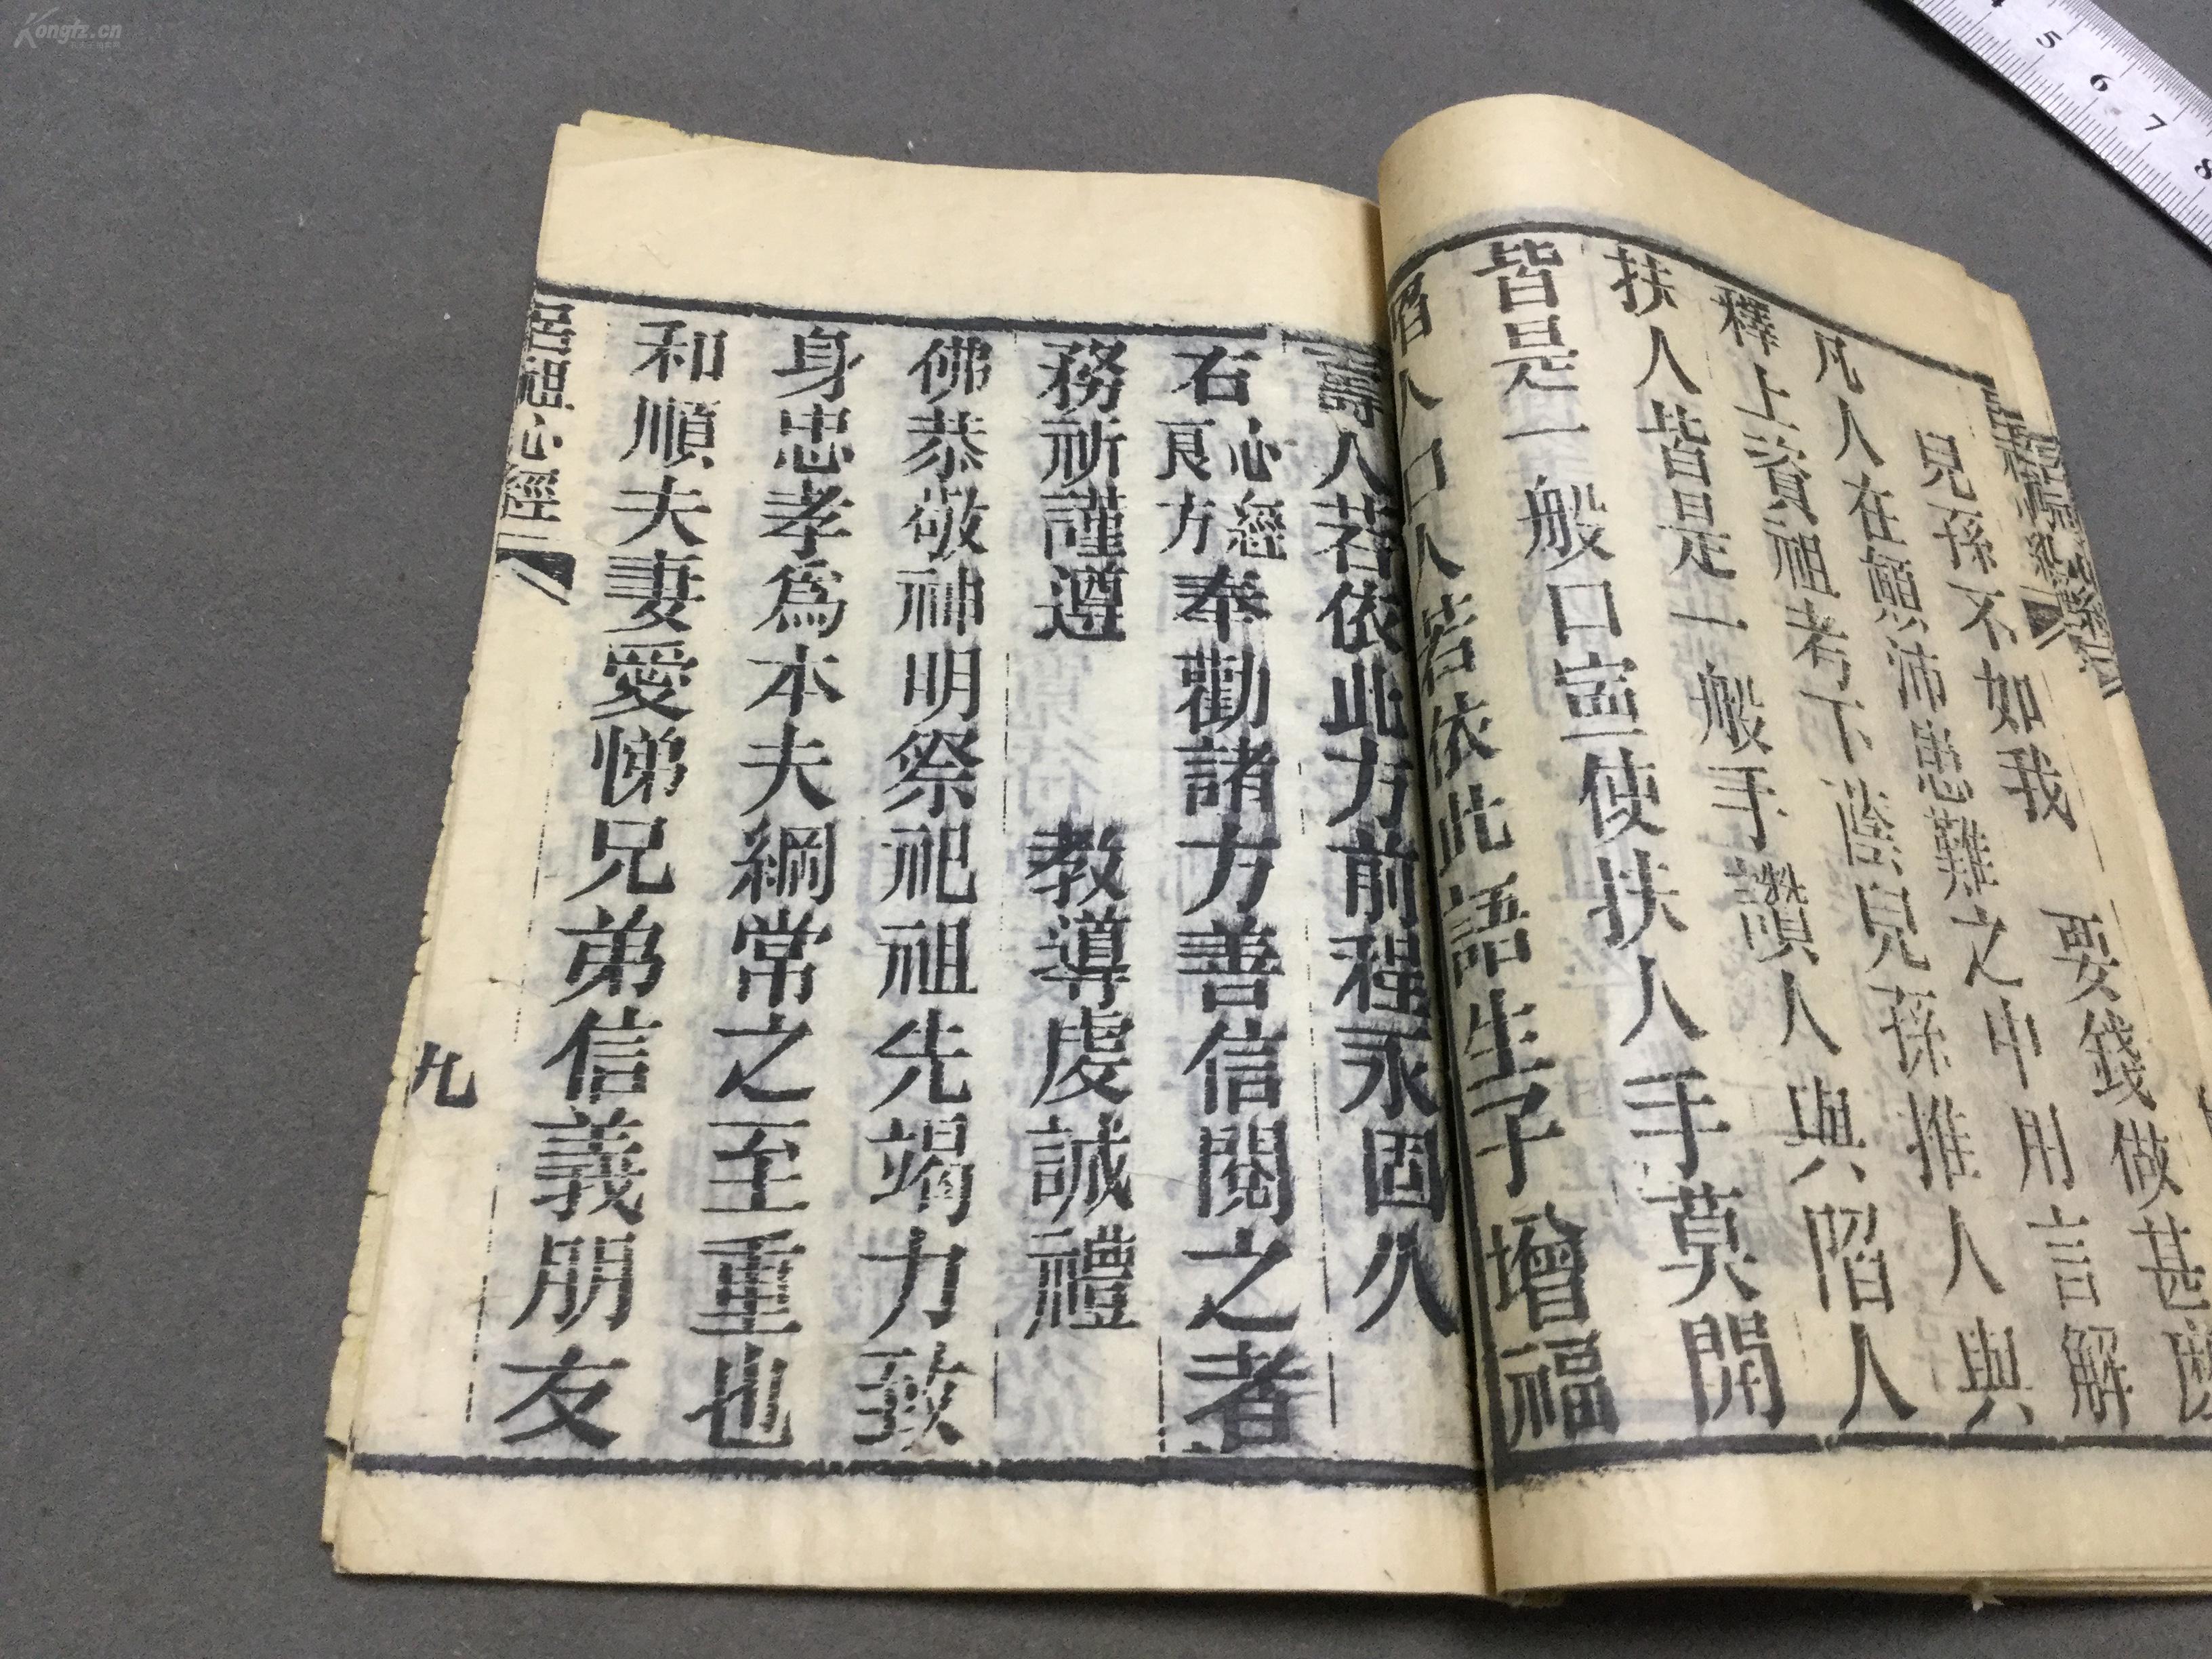 兒孫不如我 要錢做甚
凡人在顛沛患難之中用言解
釋上資祖考下蔭兒孫推人與
扶人皆是一般手讚人與陷人
皆是一般口寧使扶人手莫開
陷人口人若依此語生子增福
壽人若依此方前程永固久
右心經良方奉勸諸方善信閱之者
務祈謹遵 教導虔誠禮
佛恭敬神明祭祀祖先竭力致
身忠孝爲本夫綱常之至重也
和順夫妻愛悌兄弟信義朋友
呂祖心經 九
5 6 7 8
Kongfz.cn